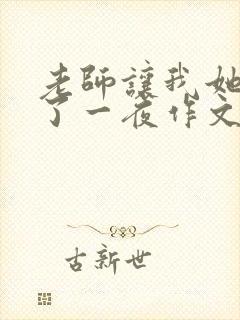 老師讓我她
了一夜作文
古新世